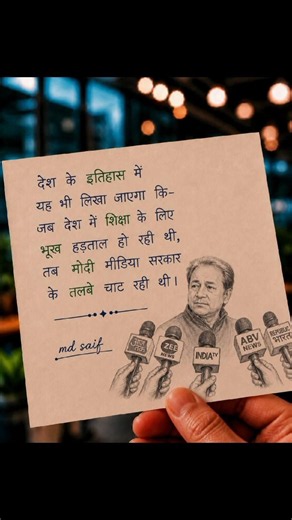 देश के इतिहास में
यह भी लिखा जाएगा कि-
जब देश में शिक्षा के लिए
भूख हड़ताल हो रही थी,
तब मोदी मीडिया सरकार
के तलवे चाट रही थी।
md saif
NEWS
INDIA TV
ABV
NEWS
REPUBLIC
भारत